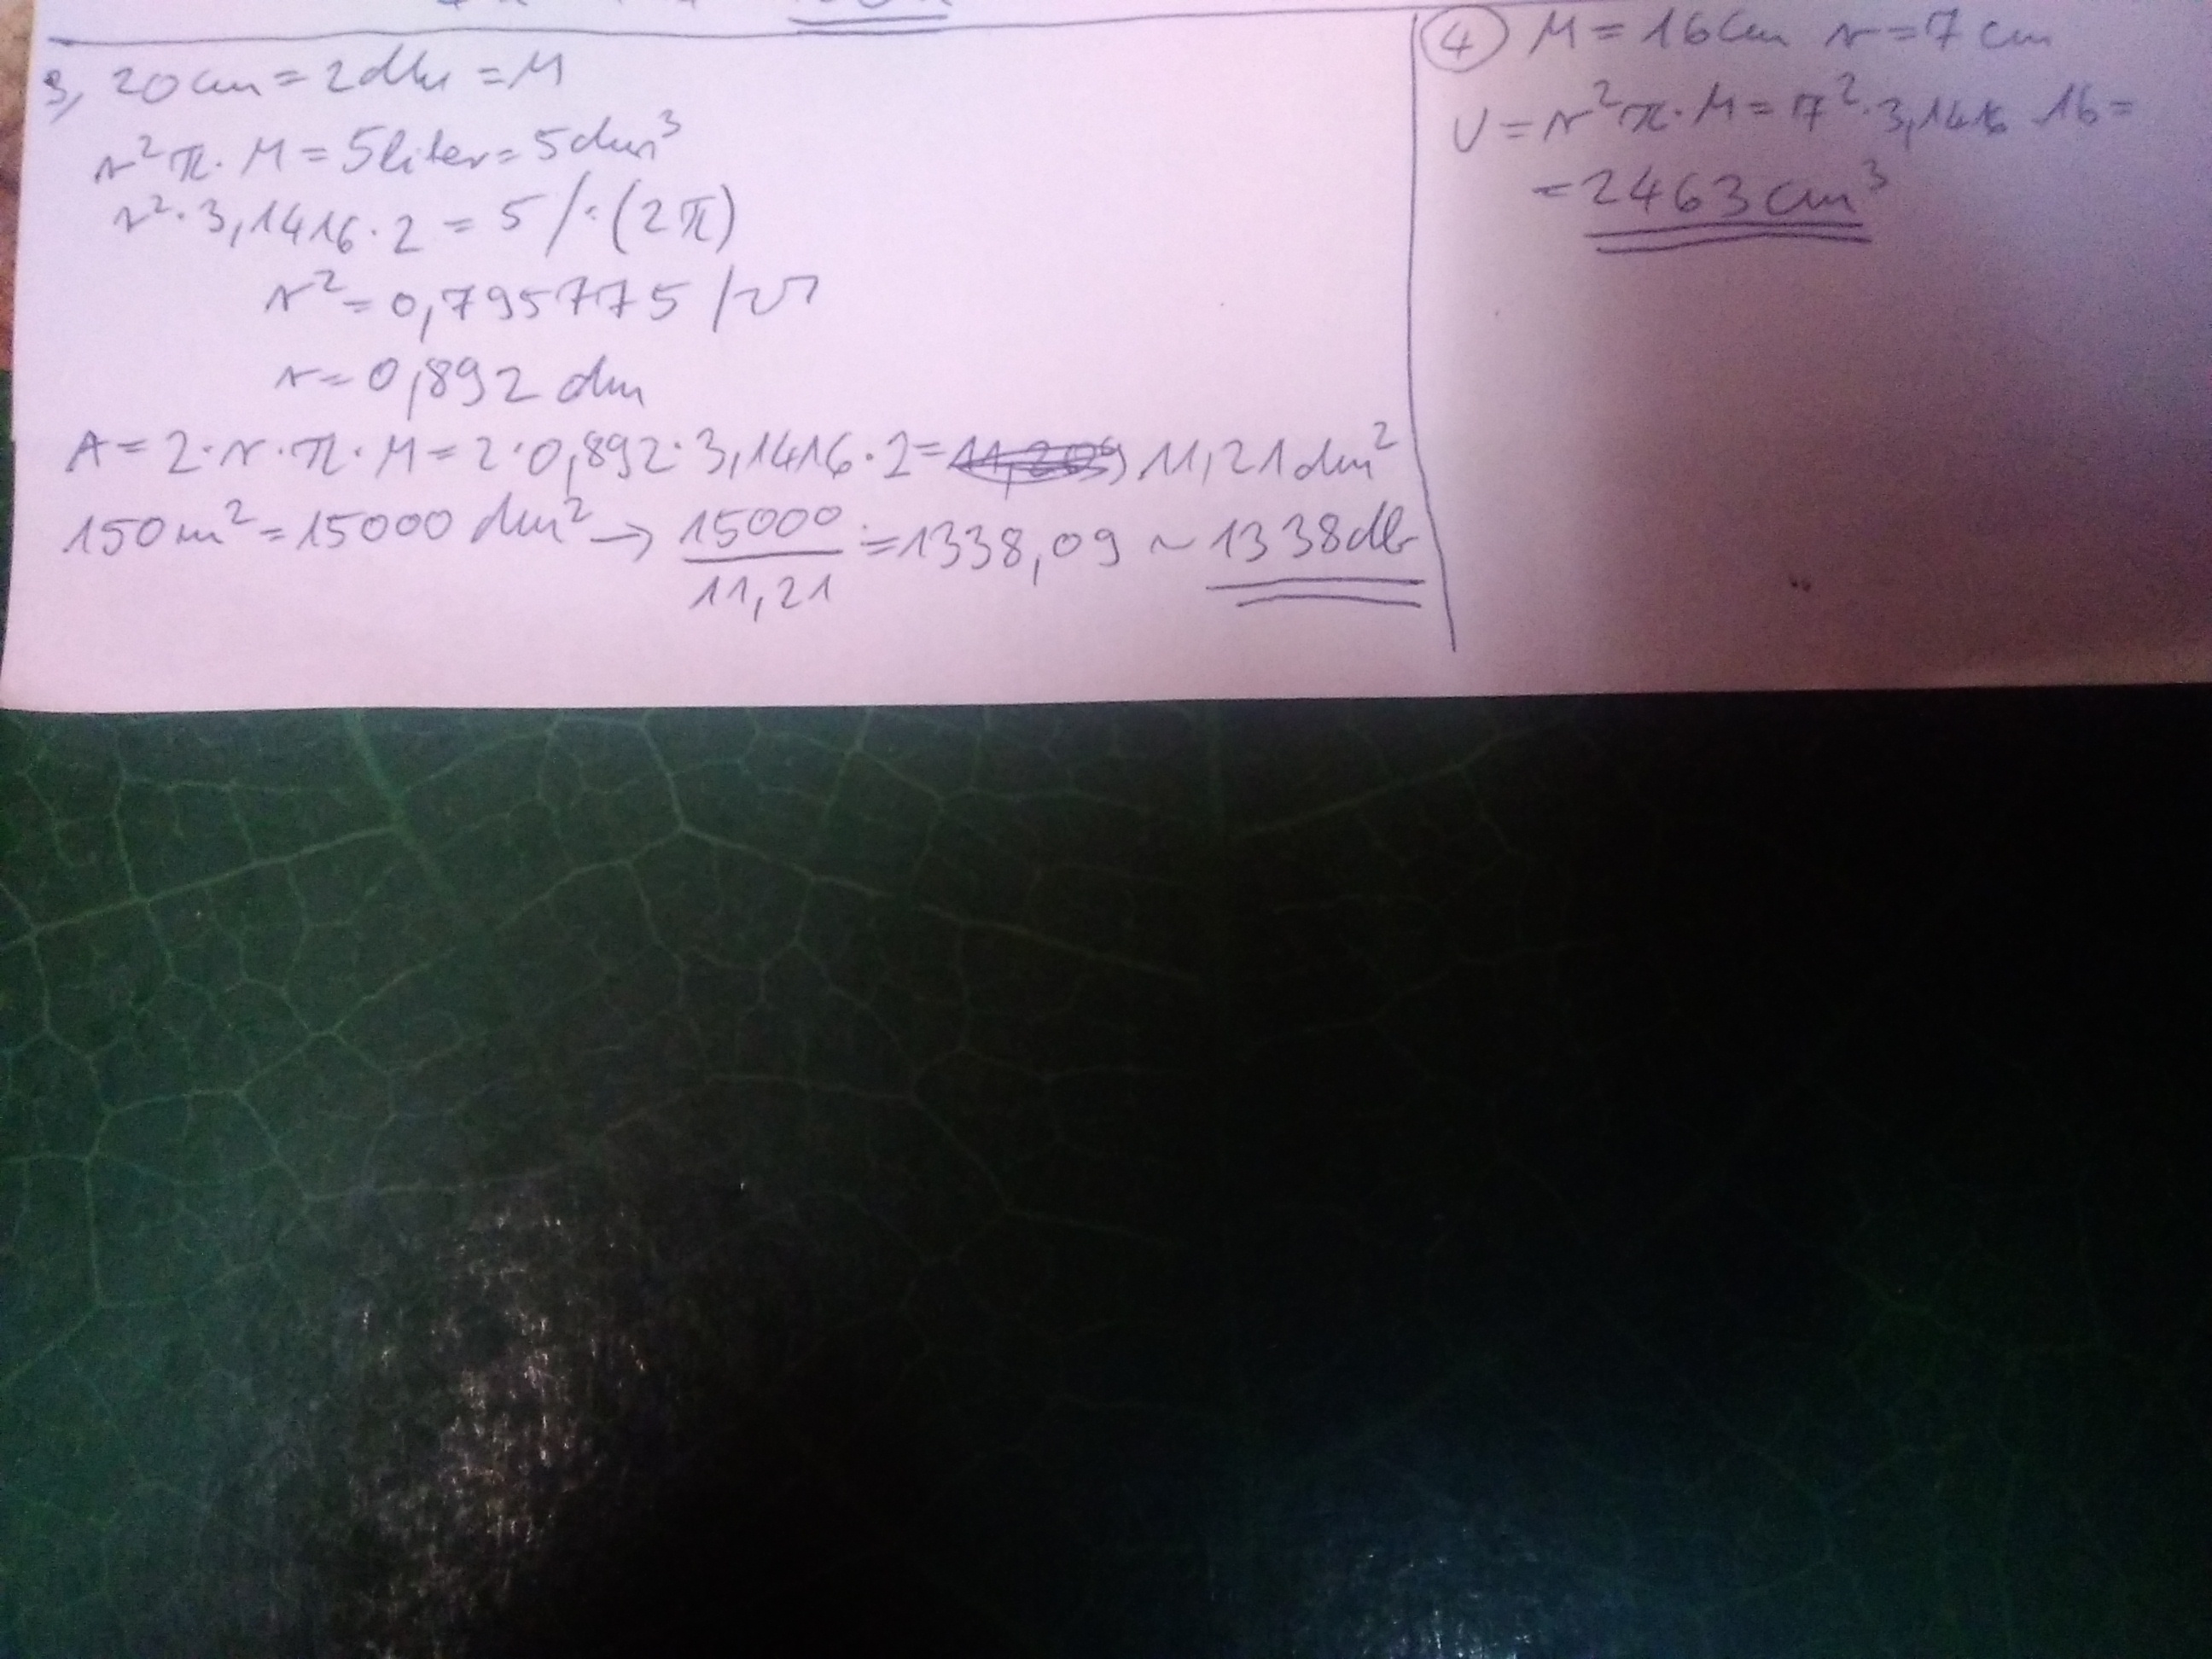 3, 20cm = 2dm = M
r²π · M = 5liter = 5dm³
r² · 3,1416 · 2 = 5 /:(2π)
r² = 0,795775 /√
r = 0,892 dm
A = 2·r·π·M = 2·0,892·3,1416·2 = 11,21dm²
150m² = 15000 dm² → 15000/11,21 = 1338,09 ~ 1338db
④ M = 16cm r = 7 cm
V = r²π·M = 7²·3,1416 16 =
= 2463 cm³